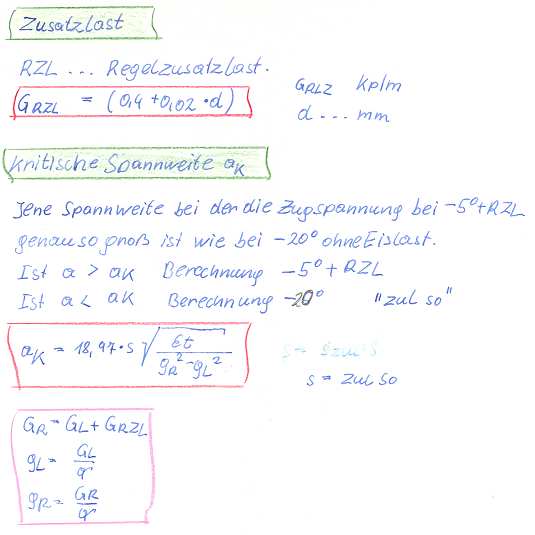 Zusatzlast
RZL ... Regelzusatzlast.
GRZL = (0,4 + 0,02 · d)
GRLZ kp/m
d ... mm
Kritische Spannweite aK
Jene Spannweite bei der die Zugspannung bei -5° + RZL
genauso groß ist wie bei -20° ohne Eislast.
Ist a > aK Berechnung -5° + RZL
Ist a < aK Berechnung -20° "zul so"
aK = 18,97 · s √(εt / (gR² - gL²))
s = zul so
GR = GL + GRZL
gL = GL / q
gR = GR / q